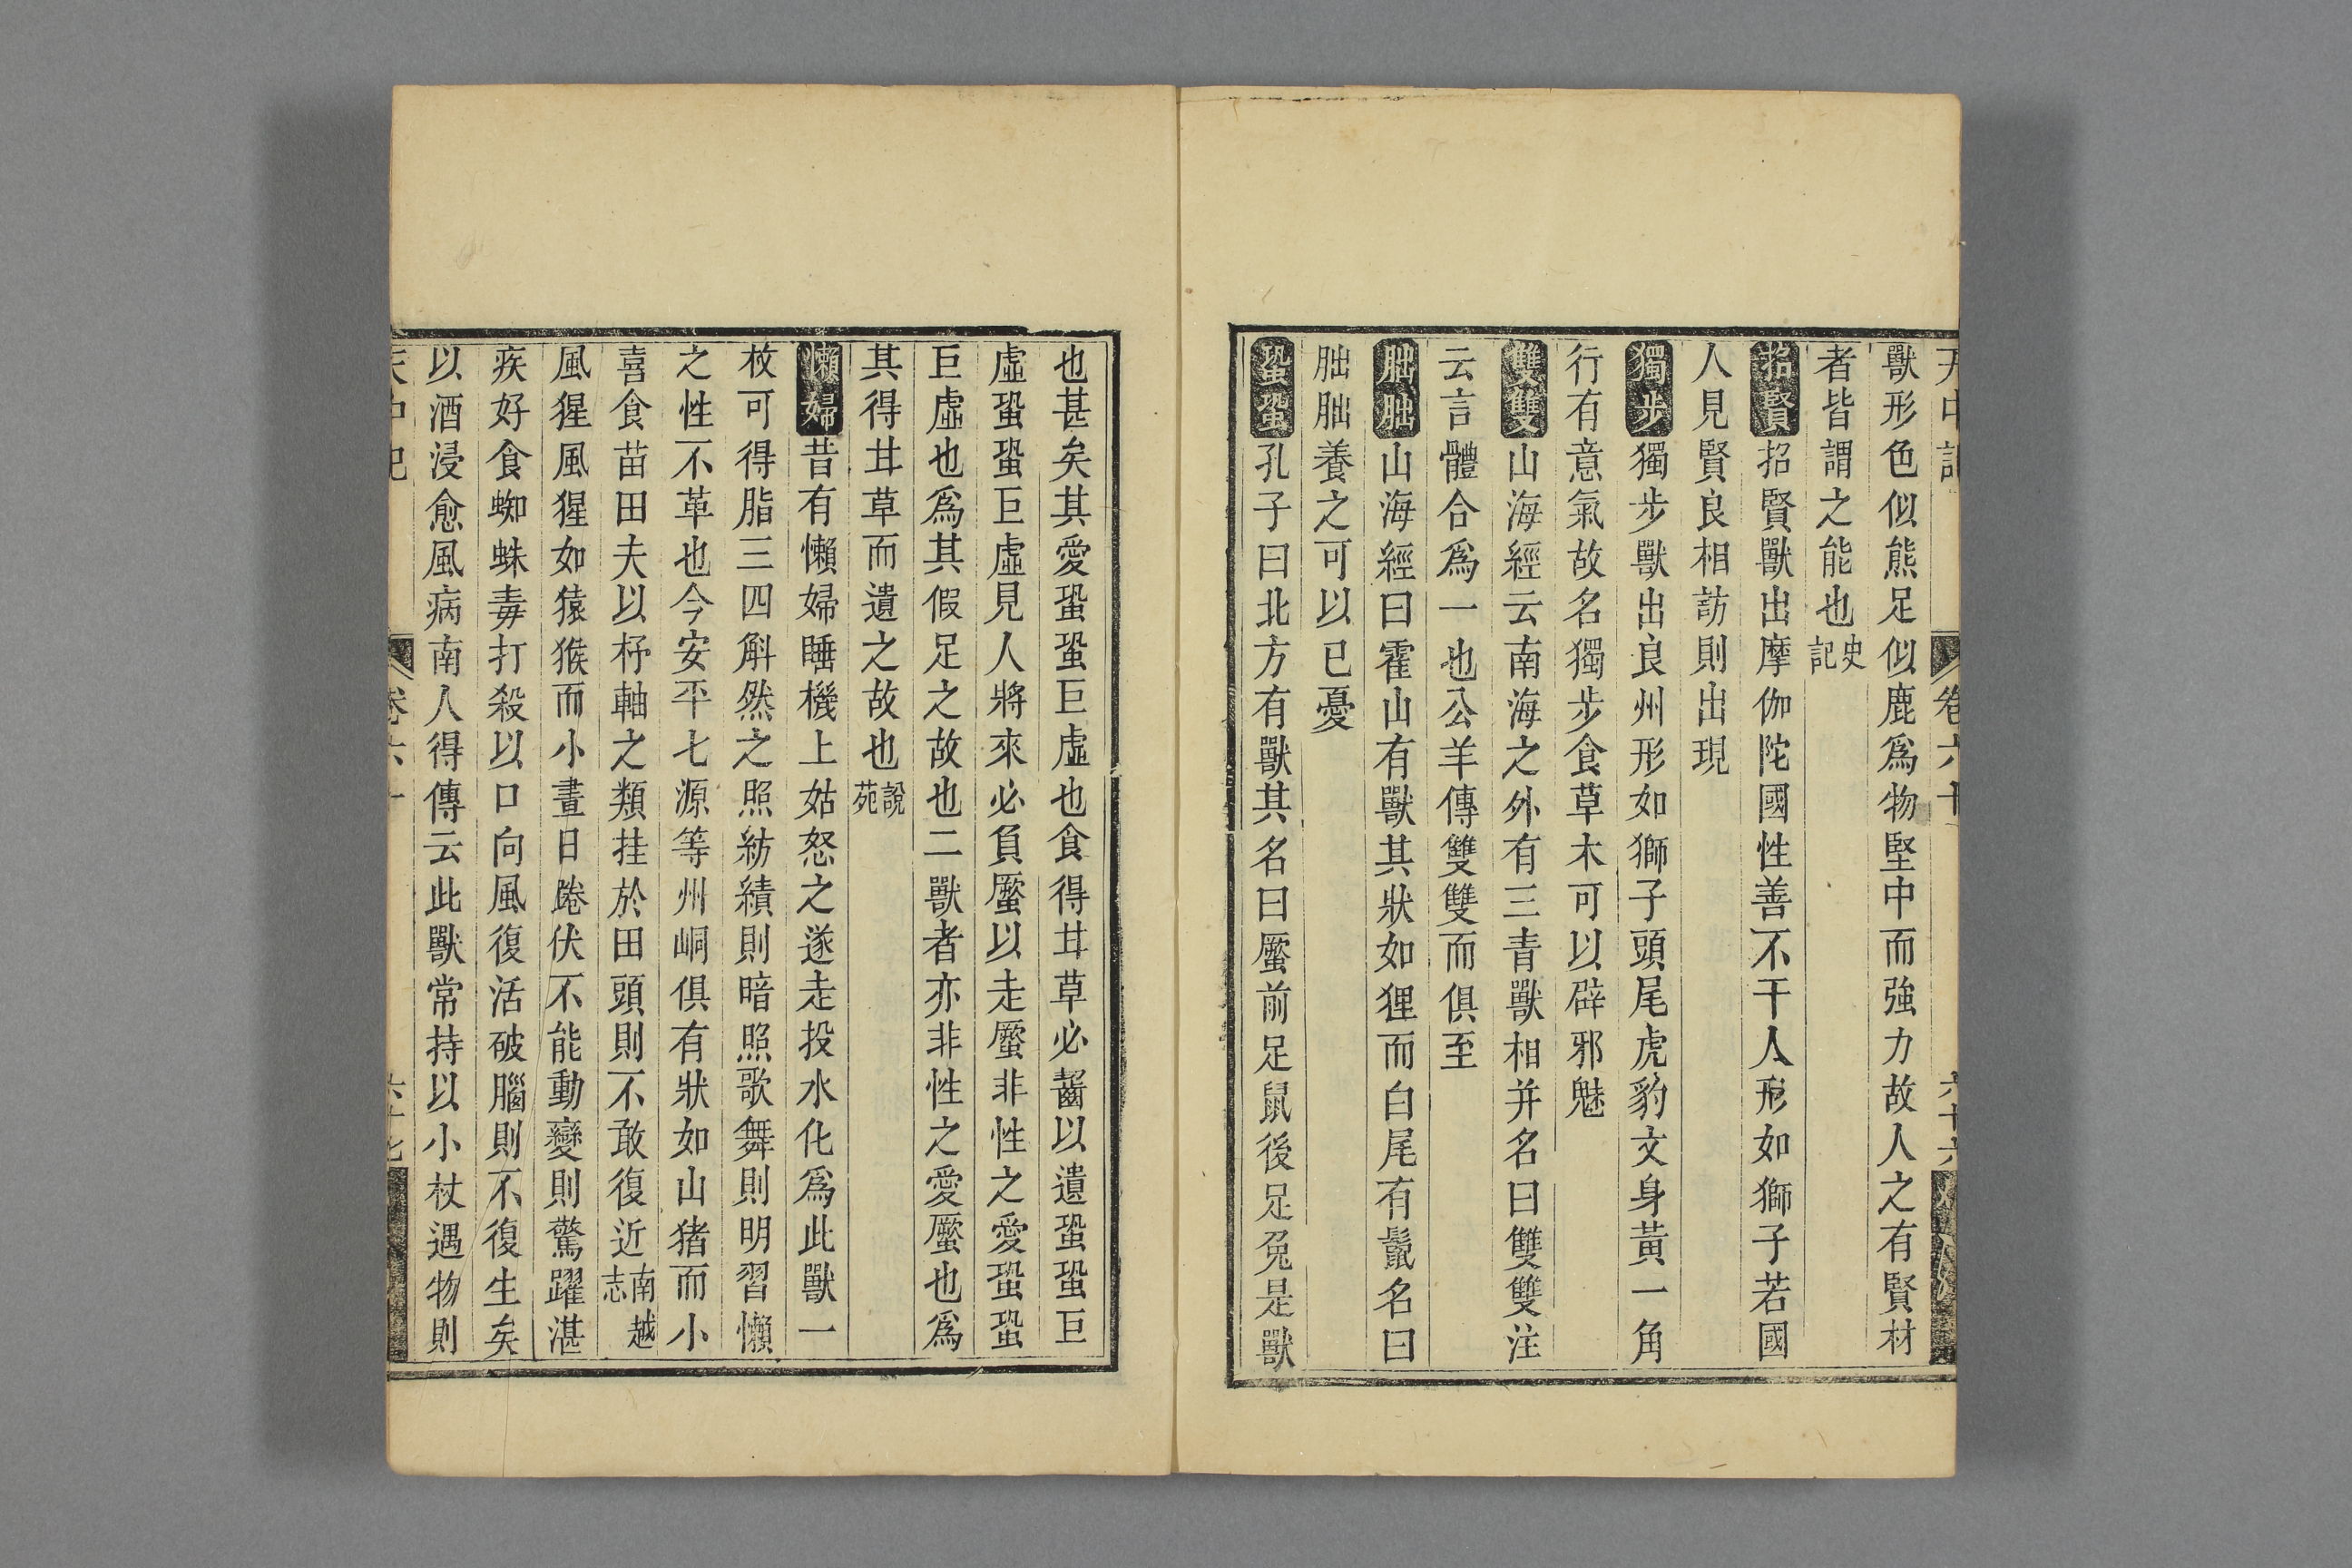 天中記 卷六十 六十六
獸形色似熊足似鹿爲物堅中而強力故人之有賢材
者皆謂之能也史記
招賢招賢獸出摩伽陀國性善不干人形如獅子若國
人見賢良相訪則出現
獨步獨步獸出良州形如獅子頭尾虎豹文身黃一角
行有意氣故名獨步食草木可以辟邪魅
雙雙山海經云南海之外有三青獸相并名曰雙雙注
云言體合爲一也公羊傳雙雙而俱至
朏朏山海經曰霍山有獸其狀如狸而白尾有鬣名曰
朏朏養之可以已憂
蛩蛩孔子曰北方有獸其名曰蟨前足鼠後足兔是獸
也甚矣其愛蛩蛩巨虛也食得甘草必齧以遺蛩蛩巨
虛蛩蛩巨虛見人將來必負蟨以走蟨非性之愛蛩蛩
巨虛也爲其假足之故也二獸者亦非性之愛蟨也爲
其得甘草而遺之故也說苑
懶婦昔有懶婦睡機上姑怒之遂走投水化爲此獸一
枚可得脂三四斛然之照紡績則暗照歌舞則明習懶
之性不革也今安平七源等州峒俱有狀如山猪而小
喜食苗田夫以杼軸之類挂於田頭則不敢復近南越志
風猩風猩如猿猴而小晝日踡伏不能動變則驚躍湛
疾好食蜘蛛毒打殺以口向風復活破腦則不復生矣
以酒浸愈風病南人得傳云此獸常持以小杖遇物則
天中記 卷六十 六十七